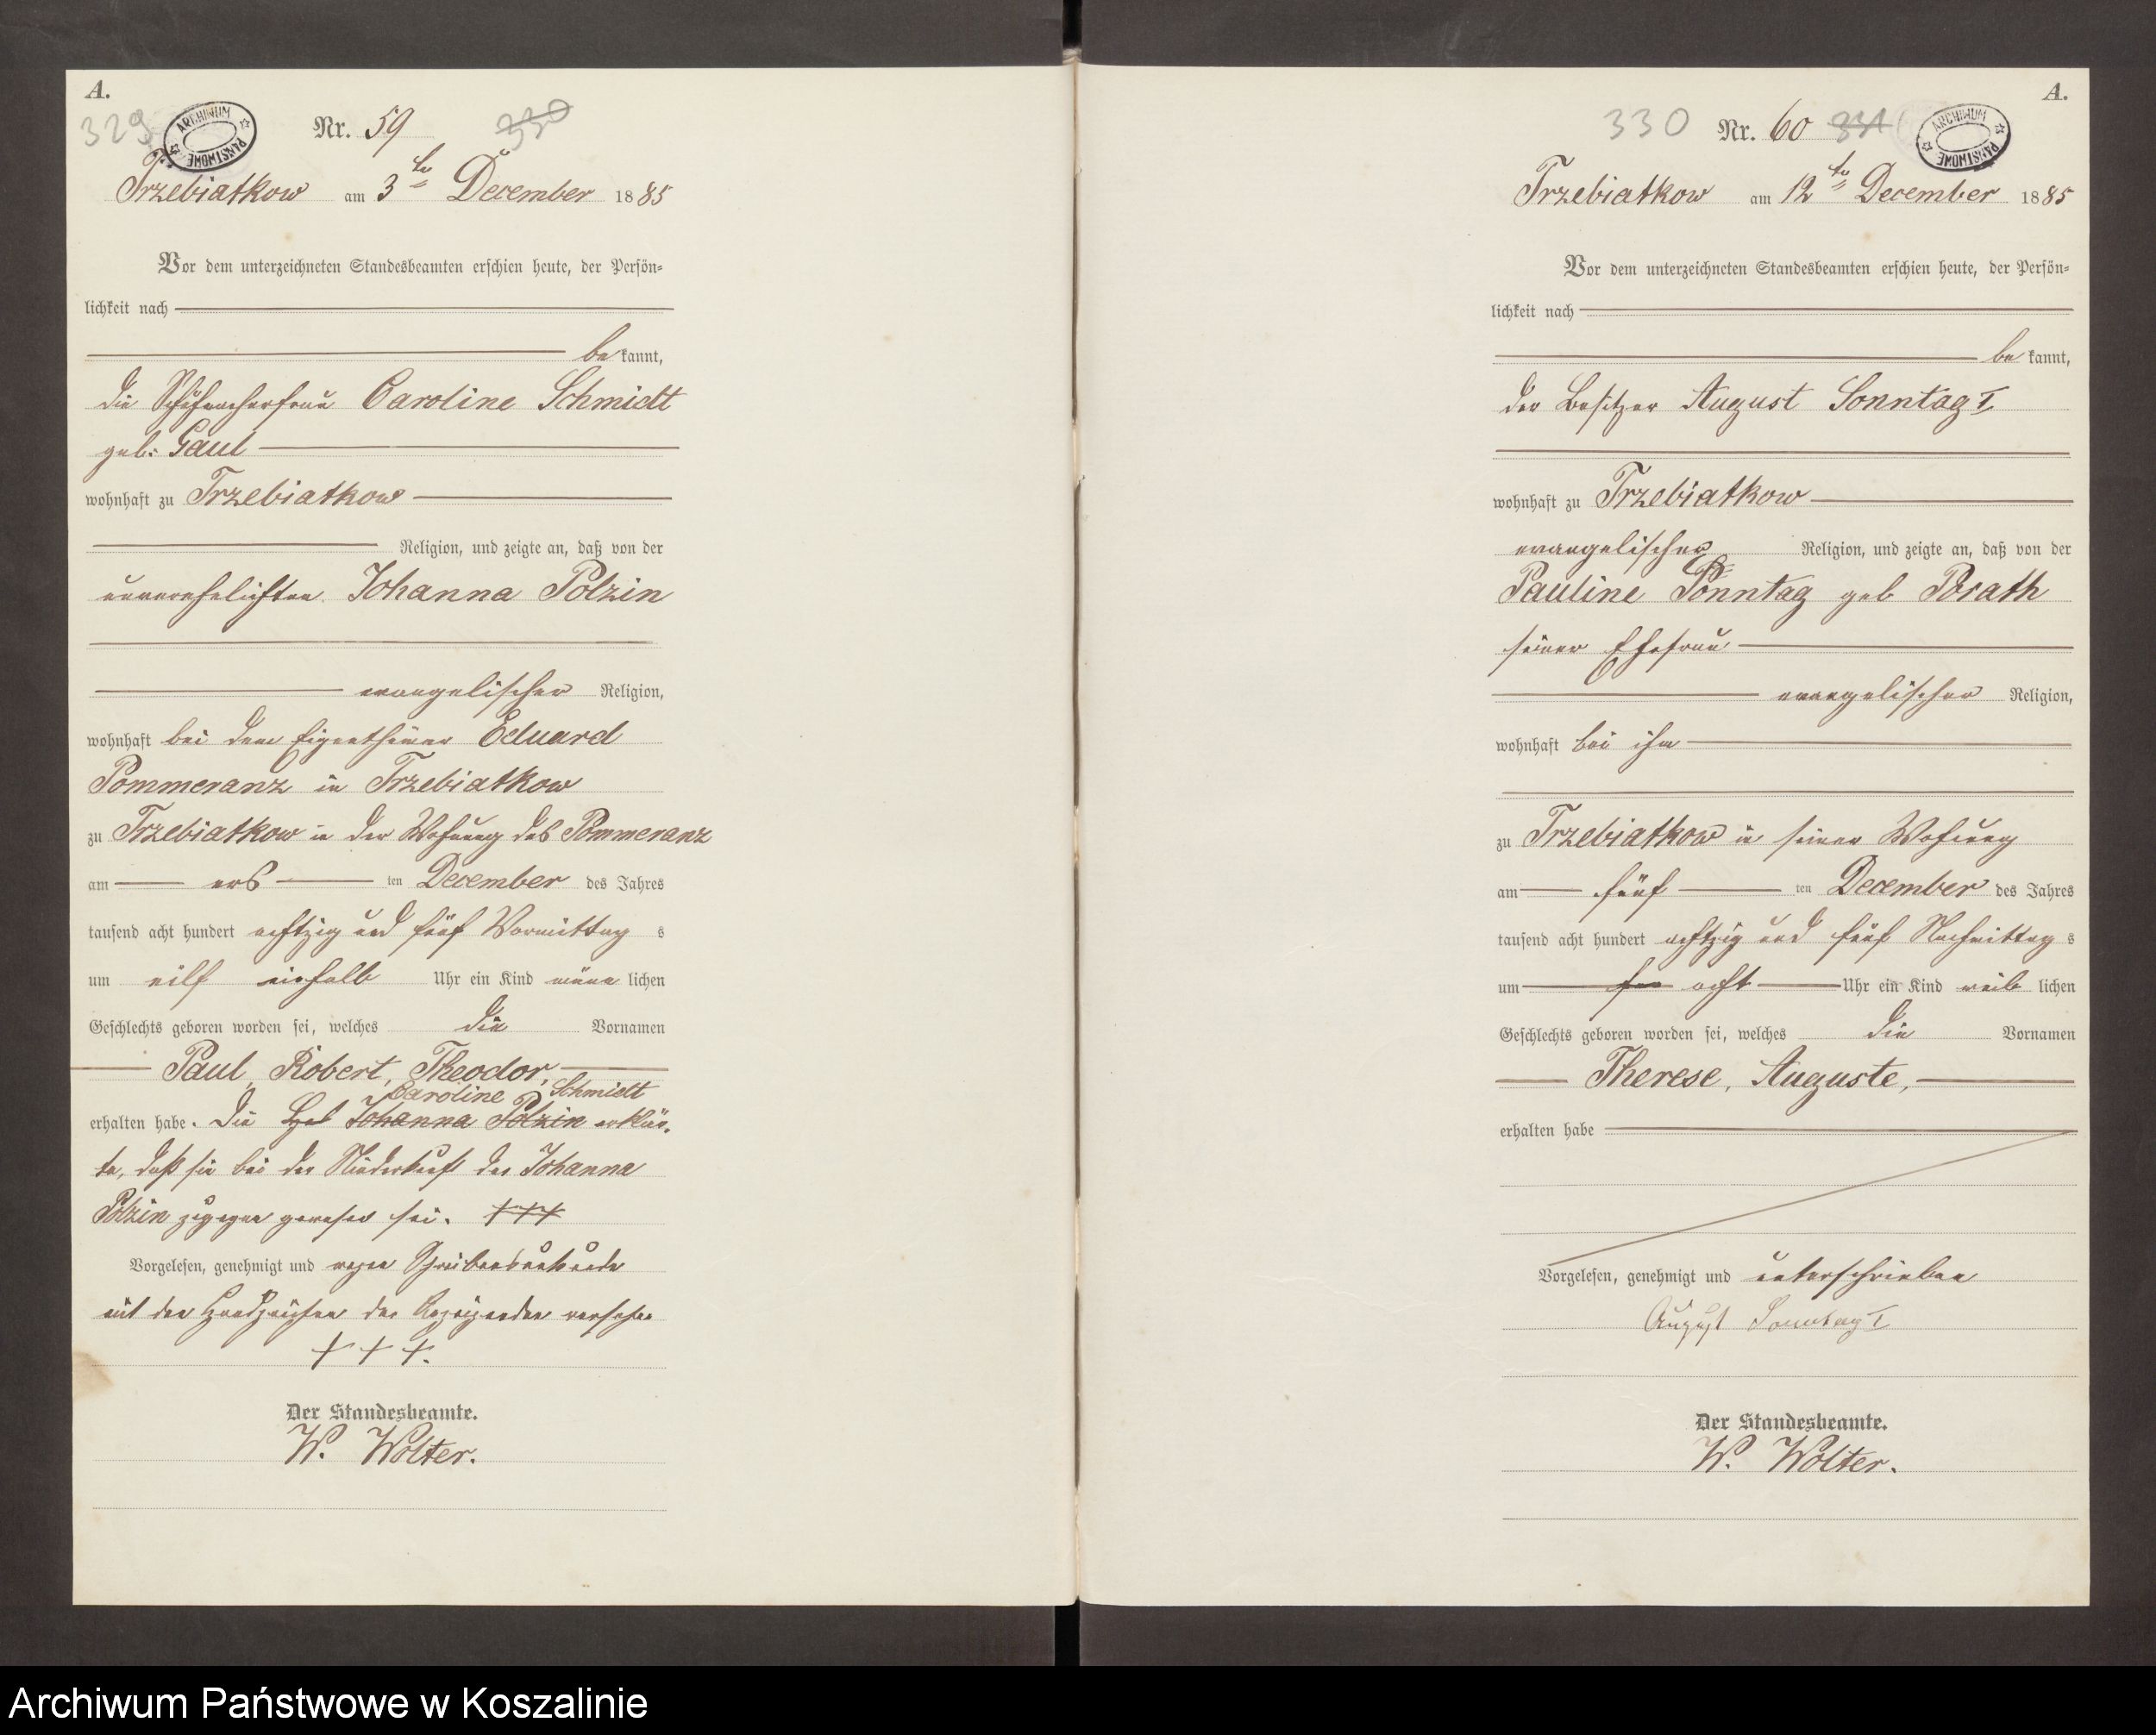 A.
329
ARCHIWUM PAŃSTWOWE
Nr. 59
330
Trzebiatkow am 3ten December 1885
Vor dem unterzeichneten Standesbeamten erschien heute, der Persön-
lichkeit nach
bekannt,
die Schuhmacherfrau Caroline Schmidt
geb: Gaul
wohnhaft zu Trzebiatkow
Religion, und zeigte an, daß von der
unverehelichten Johanna Polzin
evangelischer Religion,
wohnhaft bei dem Eigenthümer Eduard
Pommeranz in Trzebiatkow
zu Trzebiatkow in der Wohnung des Pommeranz
am ers ten December des Jahres
tausend acht hundert achtzig und fünf Vormittags
um eilf einhalb Uhr ein Kind männlichen
Geschlechts geboren worden sei, welches die Vornamen
Paul, Robert, Theodor,
Caroline Schmidt
erhalten habe. Die Johanna Polzin erklär-
te, daß sie bei der Niederkunft der Johanna
Polzin zugegen gewesen sei. +++
Vorgelesen, genehmigt und wegen Schreibensunkunde
mit den Handzeichen der Anzeigenden versehen
+ + +.
Der Standesbeamte.
W. Wolter.
A.
330
Nr. 60
331
ARCHIWUM PAŃSTWOWE
Trzebiatkow am 12ten December 1885
Vor dem unterzeichneten Standesbeamten erschien heute, der Persön-
lichkeit nach
bekannt,
der Besitzer August Sonntag I
wohnhaft zu Trzebiatkow
evangelischer Religion, und zeigte an, daß von der
Pauline Sonntag geb Borath
seiner Ehefrau
evangelischer Religion,
wohnhaft bei ihm
zu Trzebiatkow in seiner Wohnung
am fünf ten December des Jahres
tausend acht hundert achtzig und fünf Nachmittags
um acht Uhr ein Kind weiblichen
Geschlechts geboren worden sei, welches die Vornamen
Therese, Auguste,
erhalten habe
Vorgelesen, genehmigt und unterschrieben
August Sonntag I
Der Standesbeamte.
W. Wolter.
Archiwum Państwowe w Koszalinie